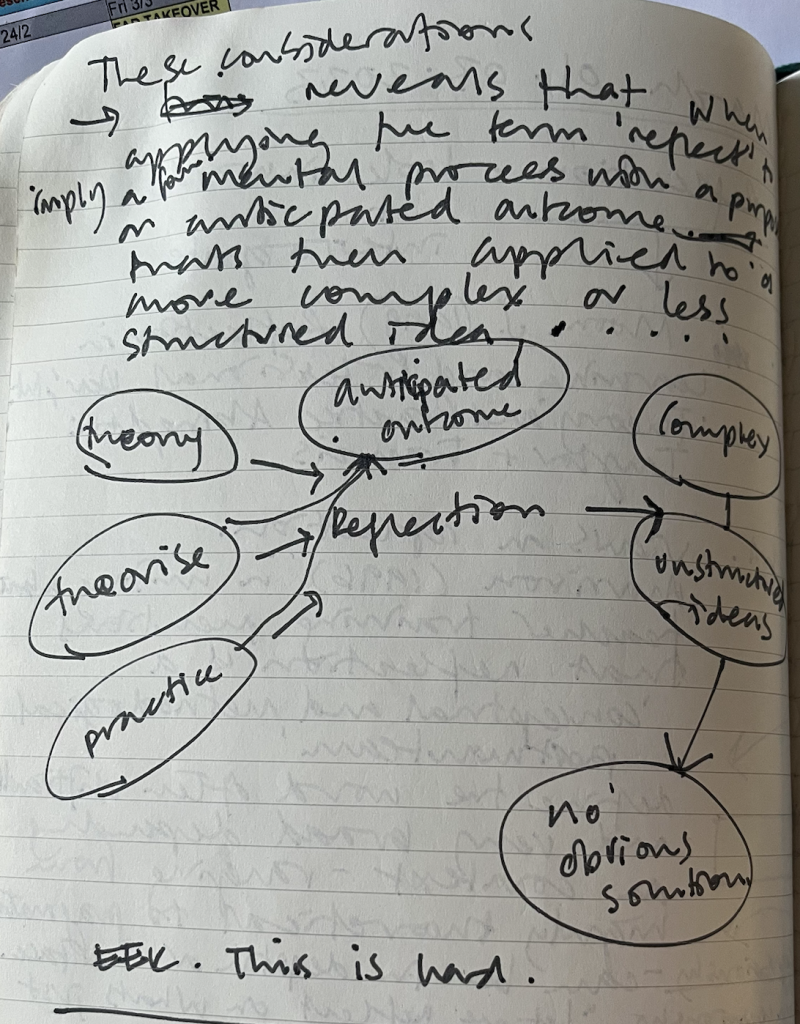 24/2
Fri 3/3
TAKEOVER
These considerations
→ reveals that when
applying the term 'reflect' to
imply a form mental process with a purp
or anticipated outcome
thats then applied to a
more complex or less
structured idea . . . . .
anticipated
outcome
theory
Complex
Reflection
theorise
unstructured
ideas
practice
no
obvious
solution
EEK. This is hard.